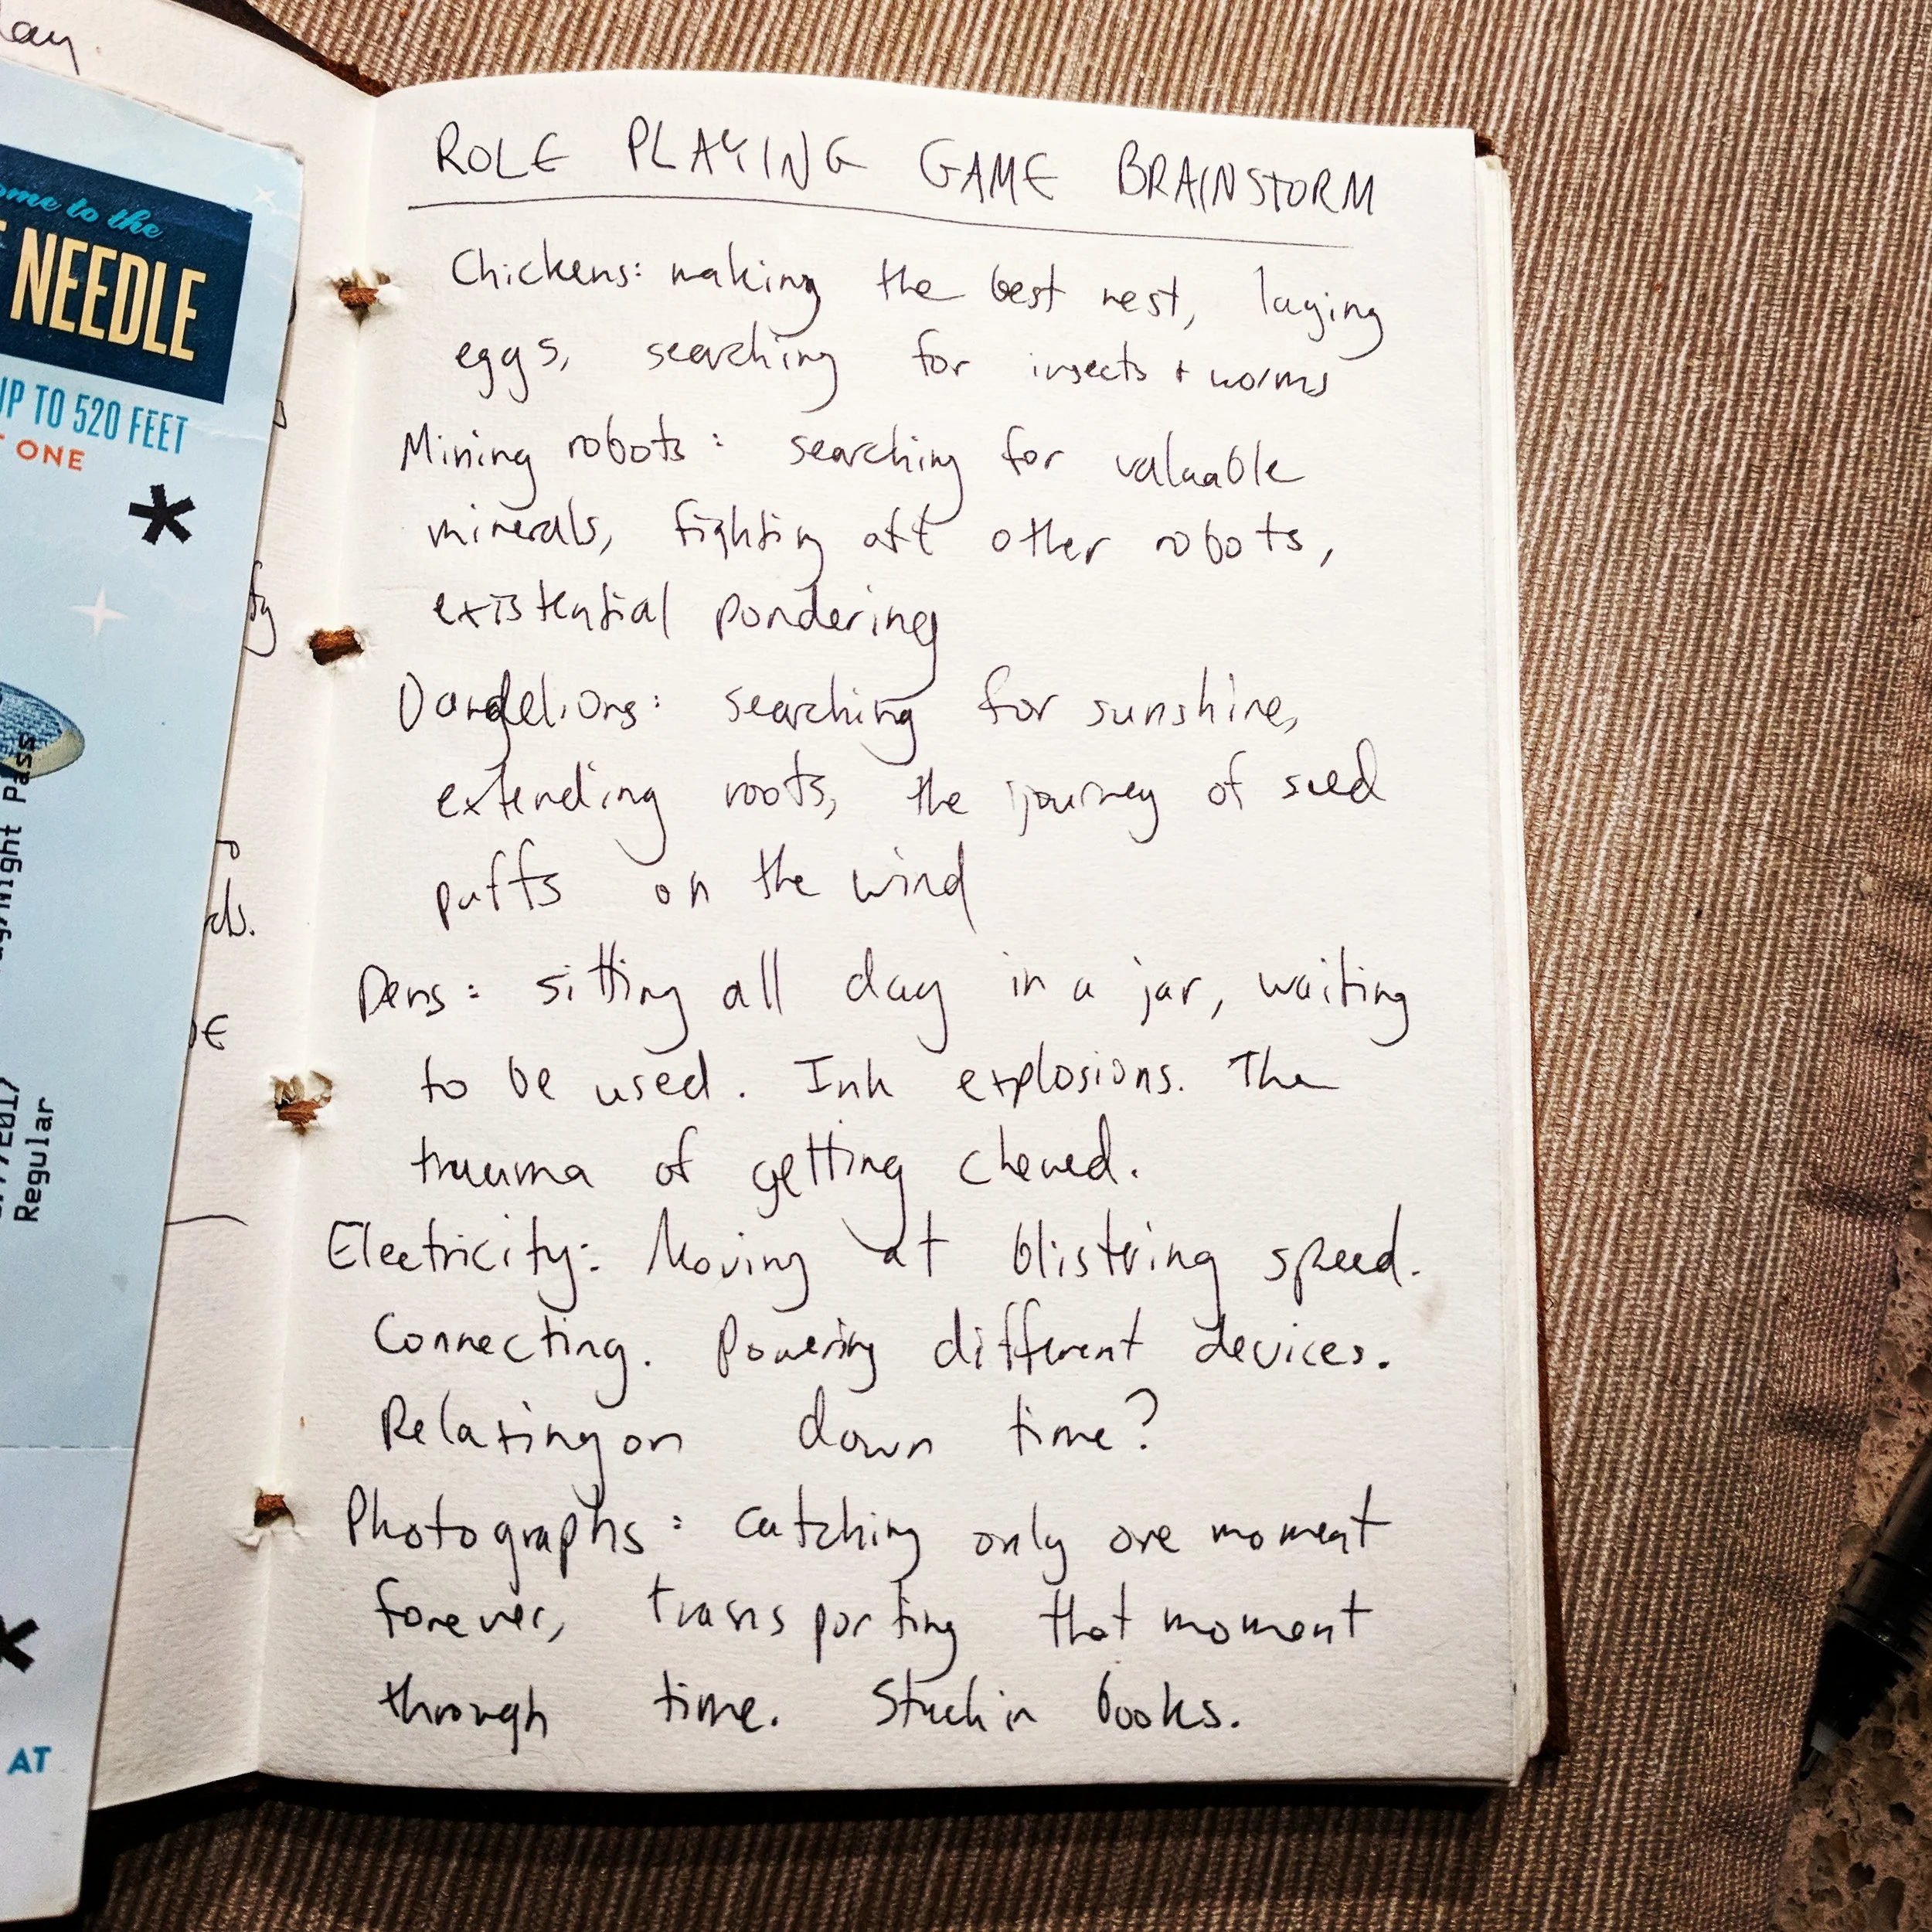 lay.
ome to the
NEEDLE
UP TO 520 FEET
ONE
*
Night Pass
2017
Regular
AT
ds.
ROLE PLAYING GAME BRAINSTORM
Chickens: making the best nest, laying
eggs, searching for insects + worms
Mining robots: searching for valuable
minerals, fighting off other robots,
existential pondering
Dandelions: searching for sunshine,
extending roots, the journey of seed
puffs on the wind
Pens: sitting all day in a jar, waiting
to be used. Ink explosions. The
trauma of getting chewed.
Electricity: Moving at blistering speed.
Connecting. Powering different devices.
Relaxing on down time?
Photographs: catching only one moment
forever, transporting that moment
through time. Stuck in books.